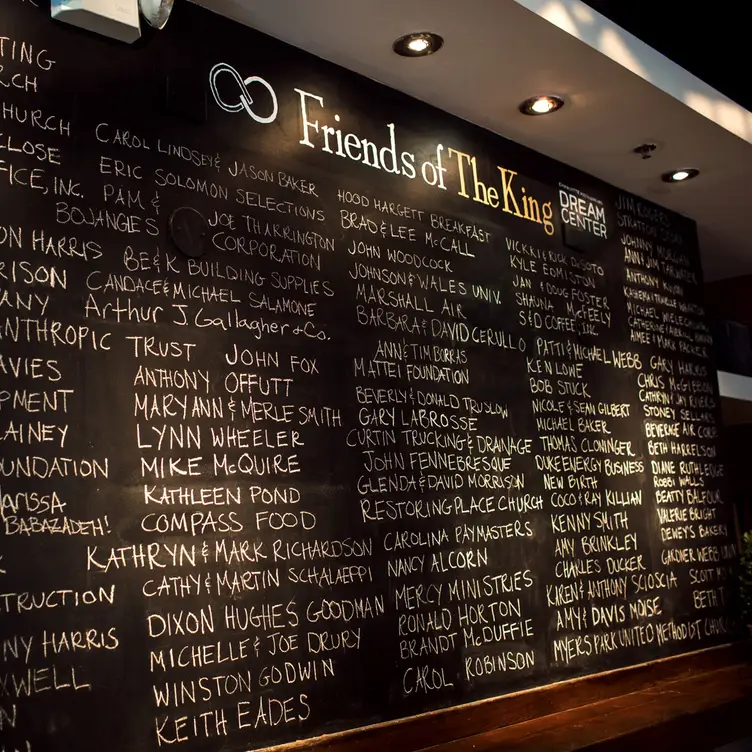 Friends of The King
DREAM
CENTER
TING
RCH
HURCH
CLOSE
FICE, INC.
ON HARRIS
RISON
ANY
ANTHROPIC
AVIES
PMENT
AINEY
UNDATION
ARISSA
BABAZADEH!
TRUCTION
NY HARRIS
XWELL
N
CAROL LINDSEY & JASON BAKER
ERIC SOLOMON SELECTIONS
PAM &
BOJANGLES
JOE THARRINGTON
CORPORATION
BE&K BUILDING SUPPLIES
CANDACE & MICHAEL SALAMONE
Arthur J. Gallagher & Co.
TRUST
JOHN FOX
ANTHONY OFFUTT
MARY ANN & MERLE SMITH
LYNN WHEELER
MIKE McQUIRE
KATHLEEN POND
COMPASS FOOD
KATHRYN & MARK RICHARDSON
CATHY & MARTIN SCHALAEPPI
DIXON HUGHES GOODMAN
MICHELLE & JOE DRURY
WINSTON GODWIN
KEITH EADES
HOOD HARGETT BREAKFAST
BRAD & LEE McCALL
JOHN WOODCOCK
JOHNSON & WALES UNIV.
MARSHALL AIR
BARBARA & DAVID CERULLO
ANN & TIM BURRAS
MATTEI FOUNDATION
BEVERLY & DONALD TRUSLOW
GARY LABROSSE
CURTIN TRUCKING & DRAINAGE
JOHN FENNEBRESQUE
GLENDA & DAVID MORRISON
RESTORING PLACE CHURCH
CAROLINA PAYMASTERS
NANCY ALCORN
MERCY MINISTRIES
RONALD HORTON
BRANDT McDUFFIE
CAROL ROBINSON
VICKI & RICK DISOTO
KYLE EDMISTON
JAN & DOUG FOSTER
SHAUNA McFEELY
S&D COFFEE, INC
PATTI & MICHAEL WEBB
KEN LOWE
BOB STUCK
NICOLE & SEAN GILBERT
MICHAEL BAKER
THOMAS CLONINGER
DUKE ENERGY BUSINESS
NEW BIRTH
COCO & RAY KILLIAN
KENNY SMITH
AMY BRINKLEY
CHARLES DUCKER
KIREN & ANTHONY SCIOSCIA
AMY & DAVIS NOISE
MYERS PARK UNITED METHODIST
JIM ROGERS
JOHNNY
ANN & JIM
ANTHONY
MICHAEL
AIMEE & MARK PACKER
GARY HARRIS
CHRIS
CATHRYN & JAY RIVERS
STONEY SELLARS
BEVERAGE AIR
BETH HARRELSON
DIANE RUTHLEDGE
ROBBI WALLS
BEATTY BALFOUR
VALERIE BRIGHT
DEWEY'S BAKERY
GARDNER WEBB
SCOTT
BETH T